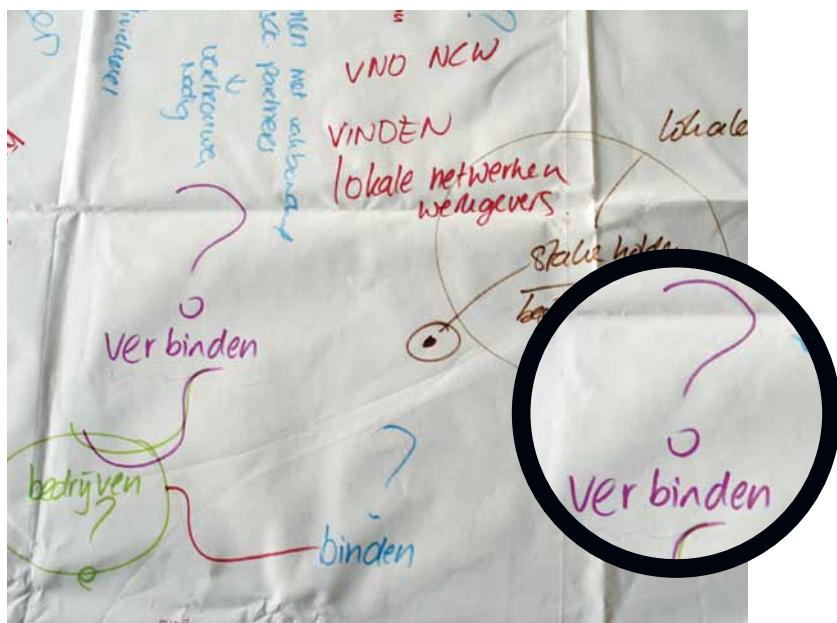 ?
VNO NCW
VINDEN
lokale netwerken
werkgevers.
lokale
partners
↓
vertrouwen
nodig
?
verbinden
bedrijven
?
?
binden
?
verbinden